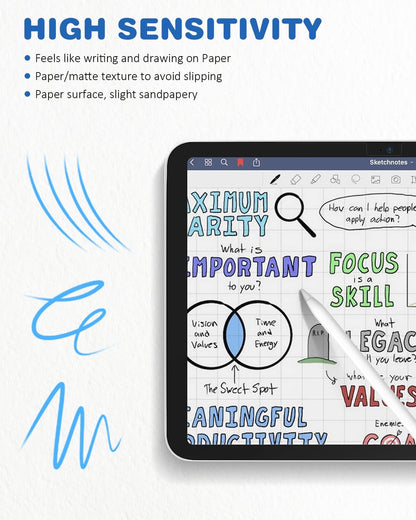 HIGH SENSITIVITY
Feels like writing and drawing on Paper
Paper/matte texture to avoid slipping
Paper surface, slight sandpapery
Sketchnotes -
AXIMUM
ARITY
How can I help people
apply action?
What is
IMPORTANT
to you?
FOCUS
is a
SKILL
Vision
and
Values
Time
and
Energy
R.I.P.
What
LEGAC
ll you leave?
The Sweet Spot
What is your
VALUES
EANINGFUL
ODUCTIVITY
Enemie